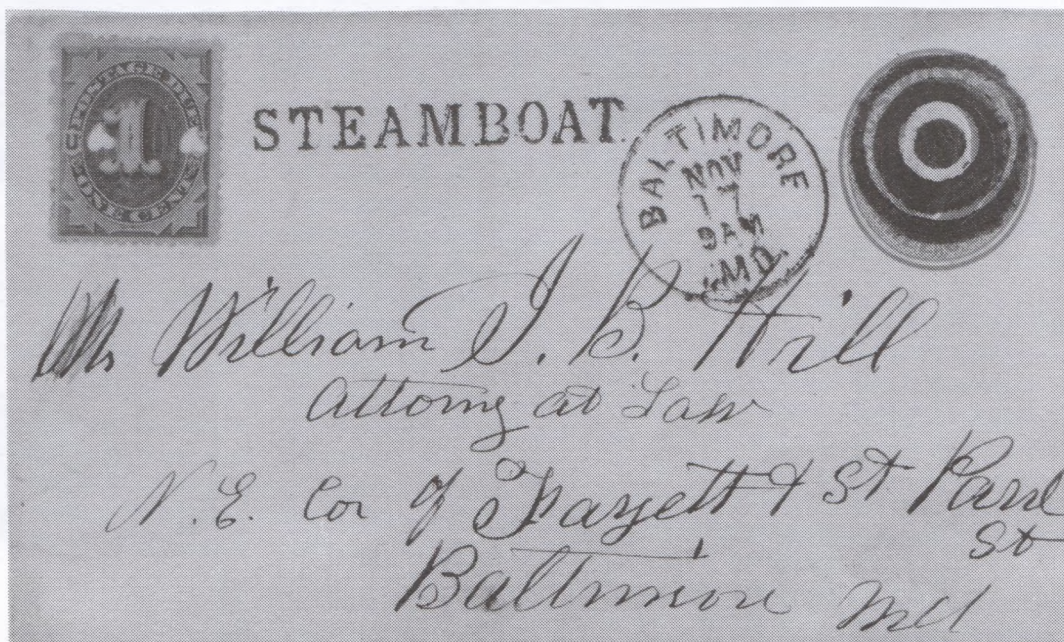 POSTAGE DUE
1
ONE CENT
STEAMBOAT
BALTIMORE
NOV
17
9AM
MD.
Mr William J. B. Hill
Attorny at Law
N.E. Cor of Fayett & St Paul
St
Baltimore Md